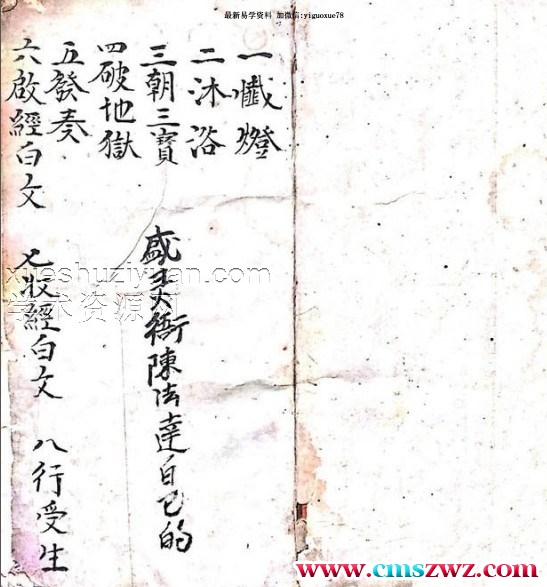 最新易学资料 加微信:yiguoxue78
一懺燈
二沐浴
三朝三寶
四破地獄
五發奏
六啟經白文
七收經白文
八行受生
灵衙陳法達自己的
xueshuziyuan.com
学术资源网
www.cmszwz.com